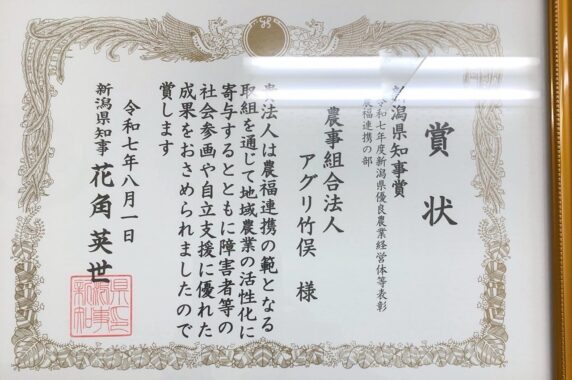 賞状
新潟県知事賞
令和七年度新潟県優良農業経営体等表彰
農福連携の部
農事組合法人
アグリ竹俣 様
貴法人は農福連携の範となる
取組を通じて地域農業の活性化に
寄与するとともに障害者等の
社会参画や自立支援に優れた
成果をおさめられましたので
賞します
令和七年八月一日
新潟県知事 花角英世